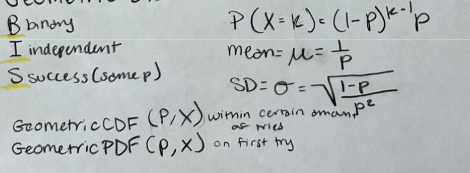 B binary
I independent
S success (same p)
P(X=k)=(1-p)^k-1 p
mean=μ=1/p
SD=σ=√1-p/p²
Geometric CDF (P,X) within certain amant
of tries
Geometric PDF (P,X) on first try